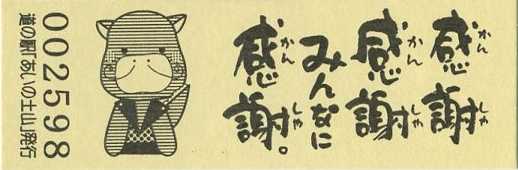 感謝
かんしゃ
感謝
かんしゃ
みんなに
感謝。
かんしゃ
002598
道の駅「あいの土山」発行